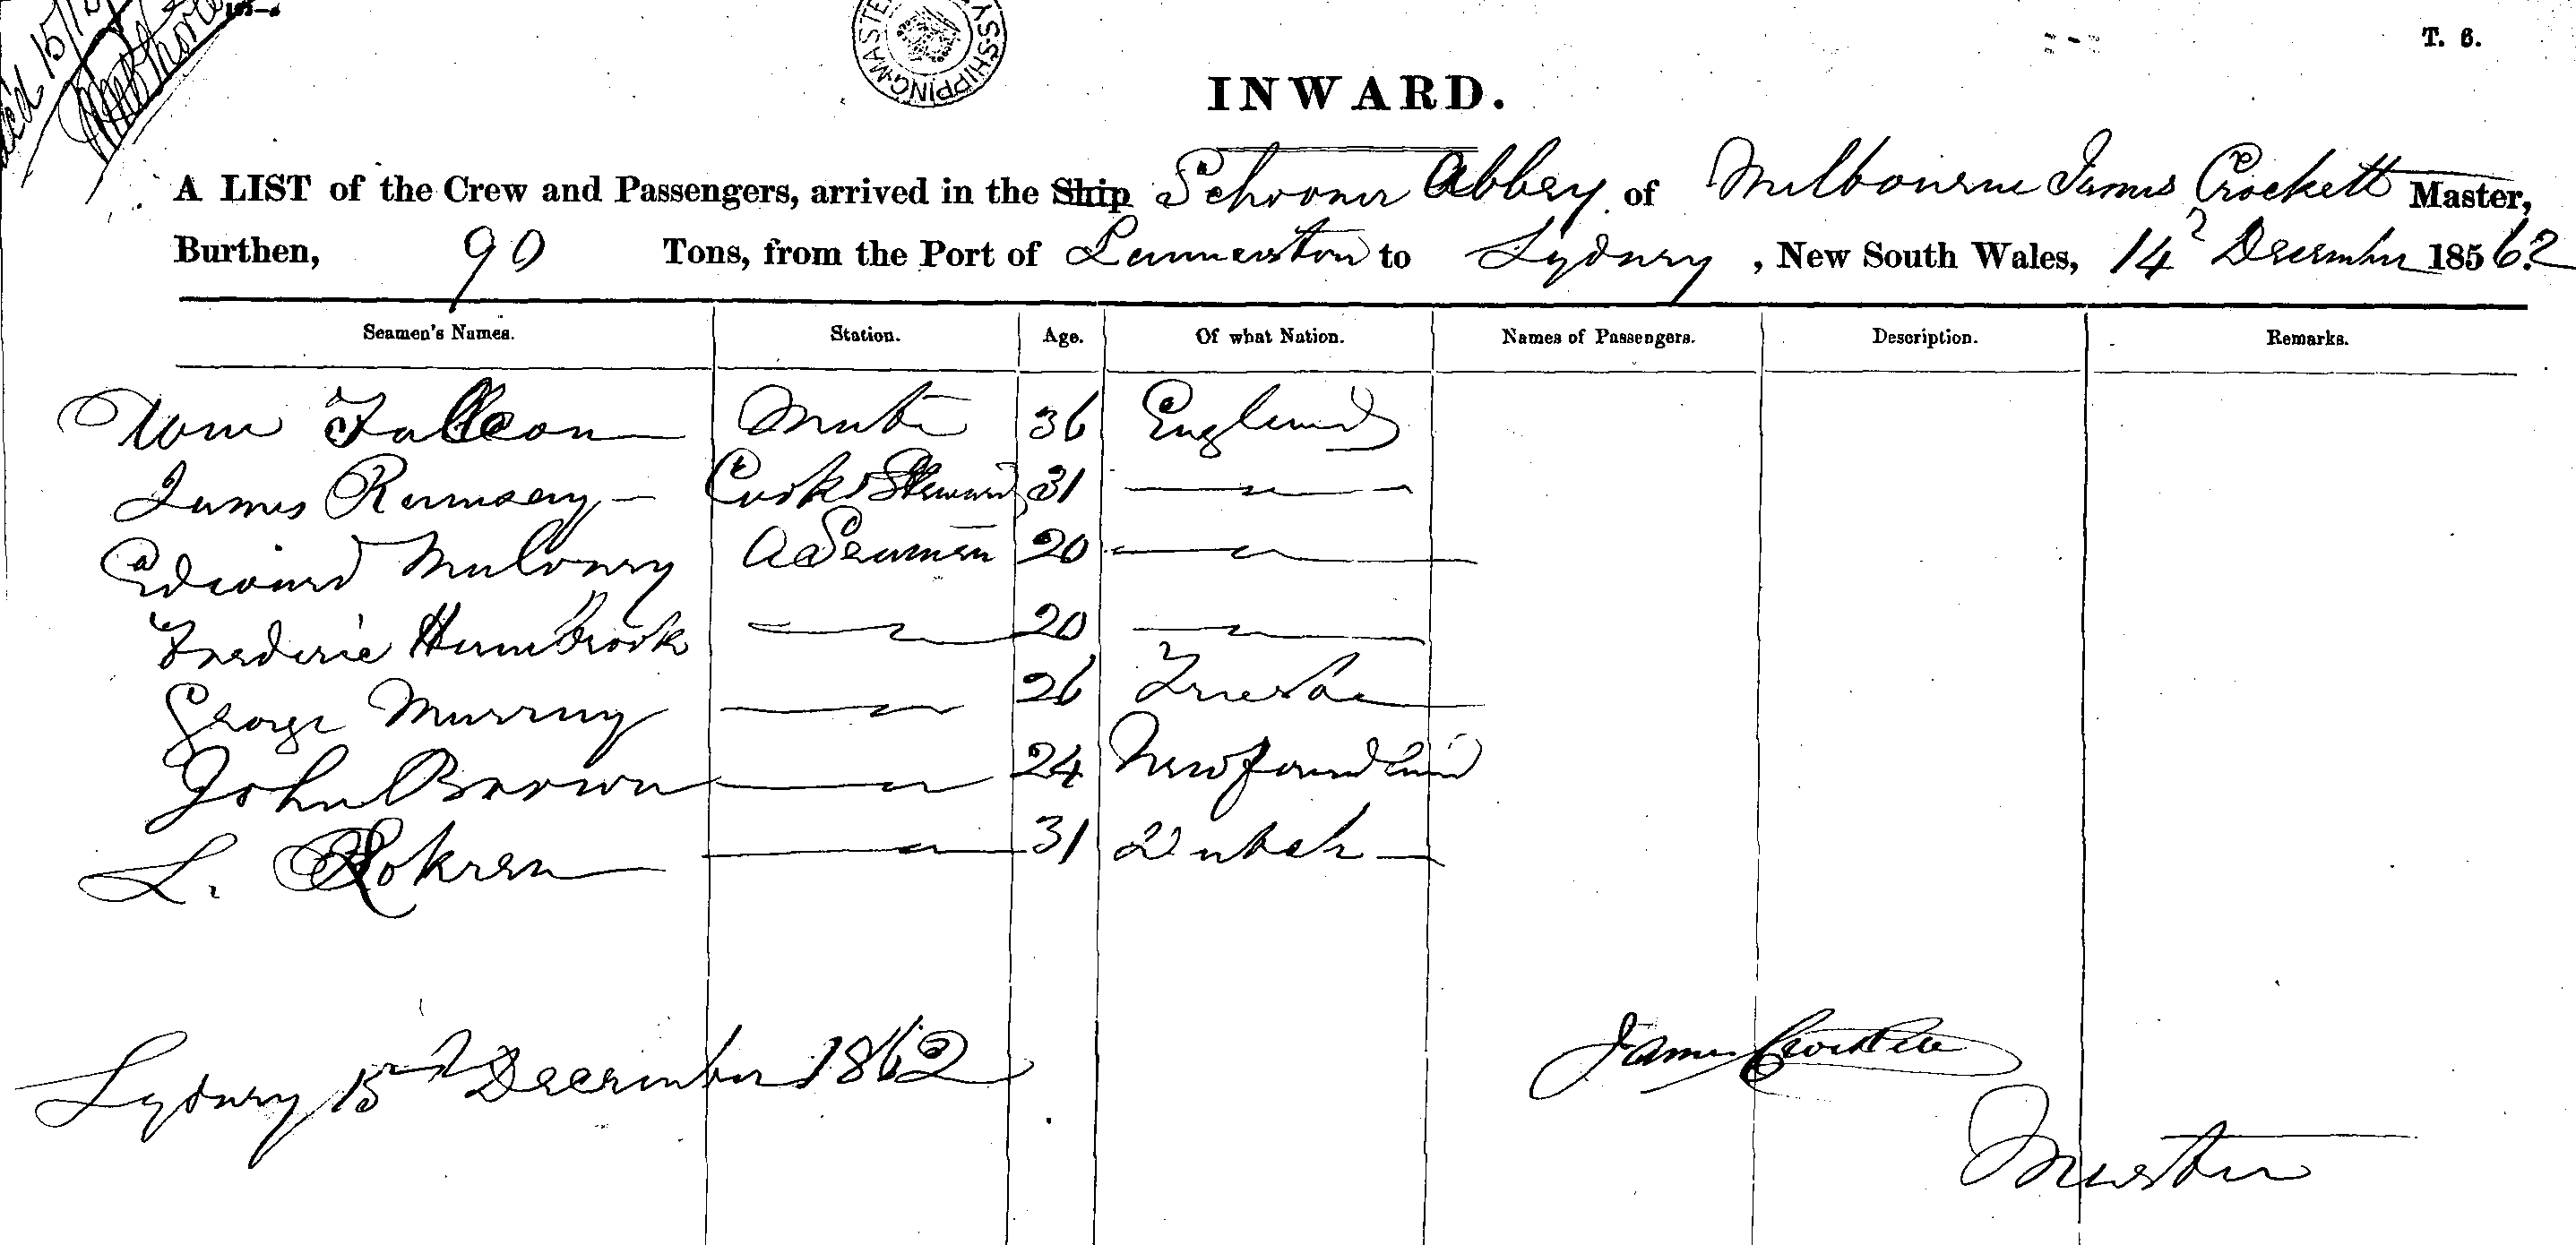 T. 6.
SHIPPING MASTER
INWARD.
A LIST of the Crew and Passengers, arrived in the Ship Schooner Abbey of Melbourne James Crockett Master,
Burthen, 90 Tons, from the Port of Launceston to Sydney, New South Wales, 14 December 1862
Seamen's Names. Station. Age. Of what Nation. Names of Passengers. Description. Remarks.
Wm Mate 36 England
James Ramsay Cook & Steward 31 —
Edward Maloney A Seaman 20 —
Frederic Hambrook — 20 —
George Murray — 26 Trieste
John Brown — 24 Newfoundland
L. — 31 Dutch
Sydney 15 December 1862
James Crockett
Master